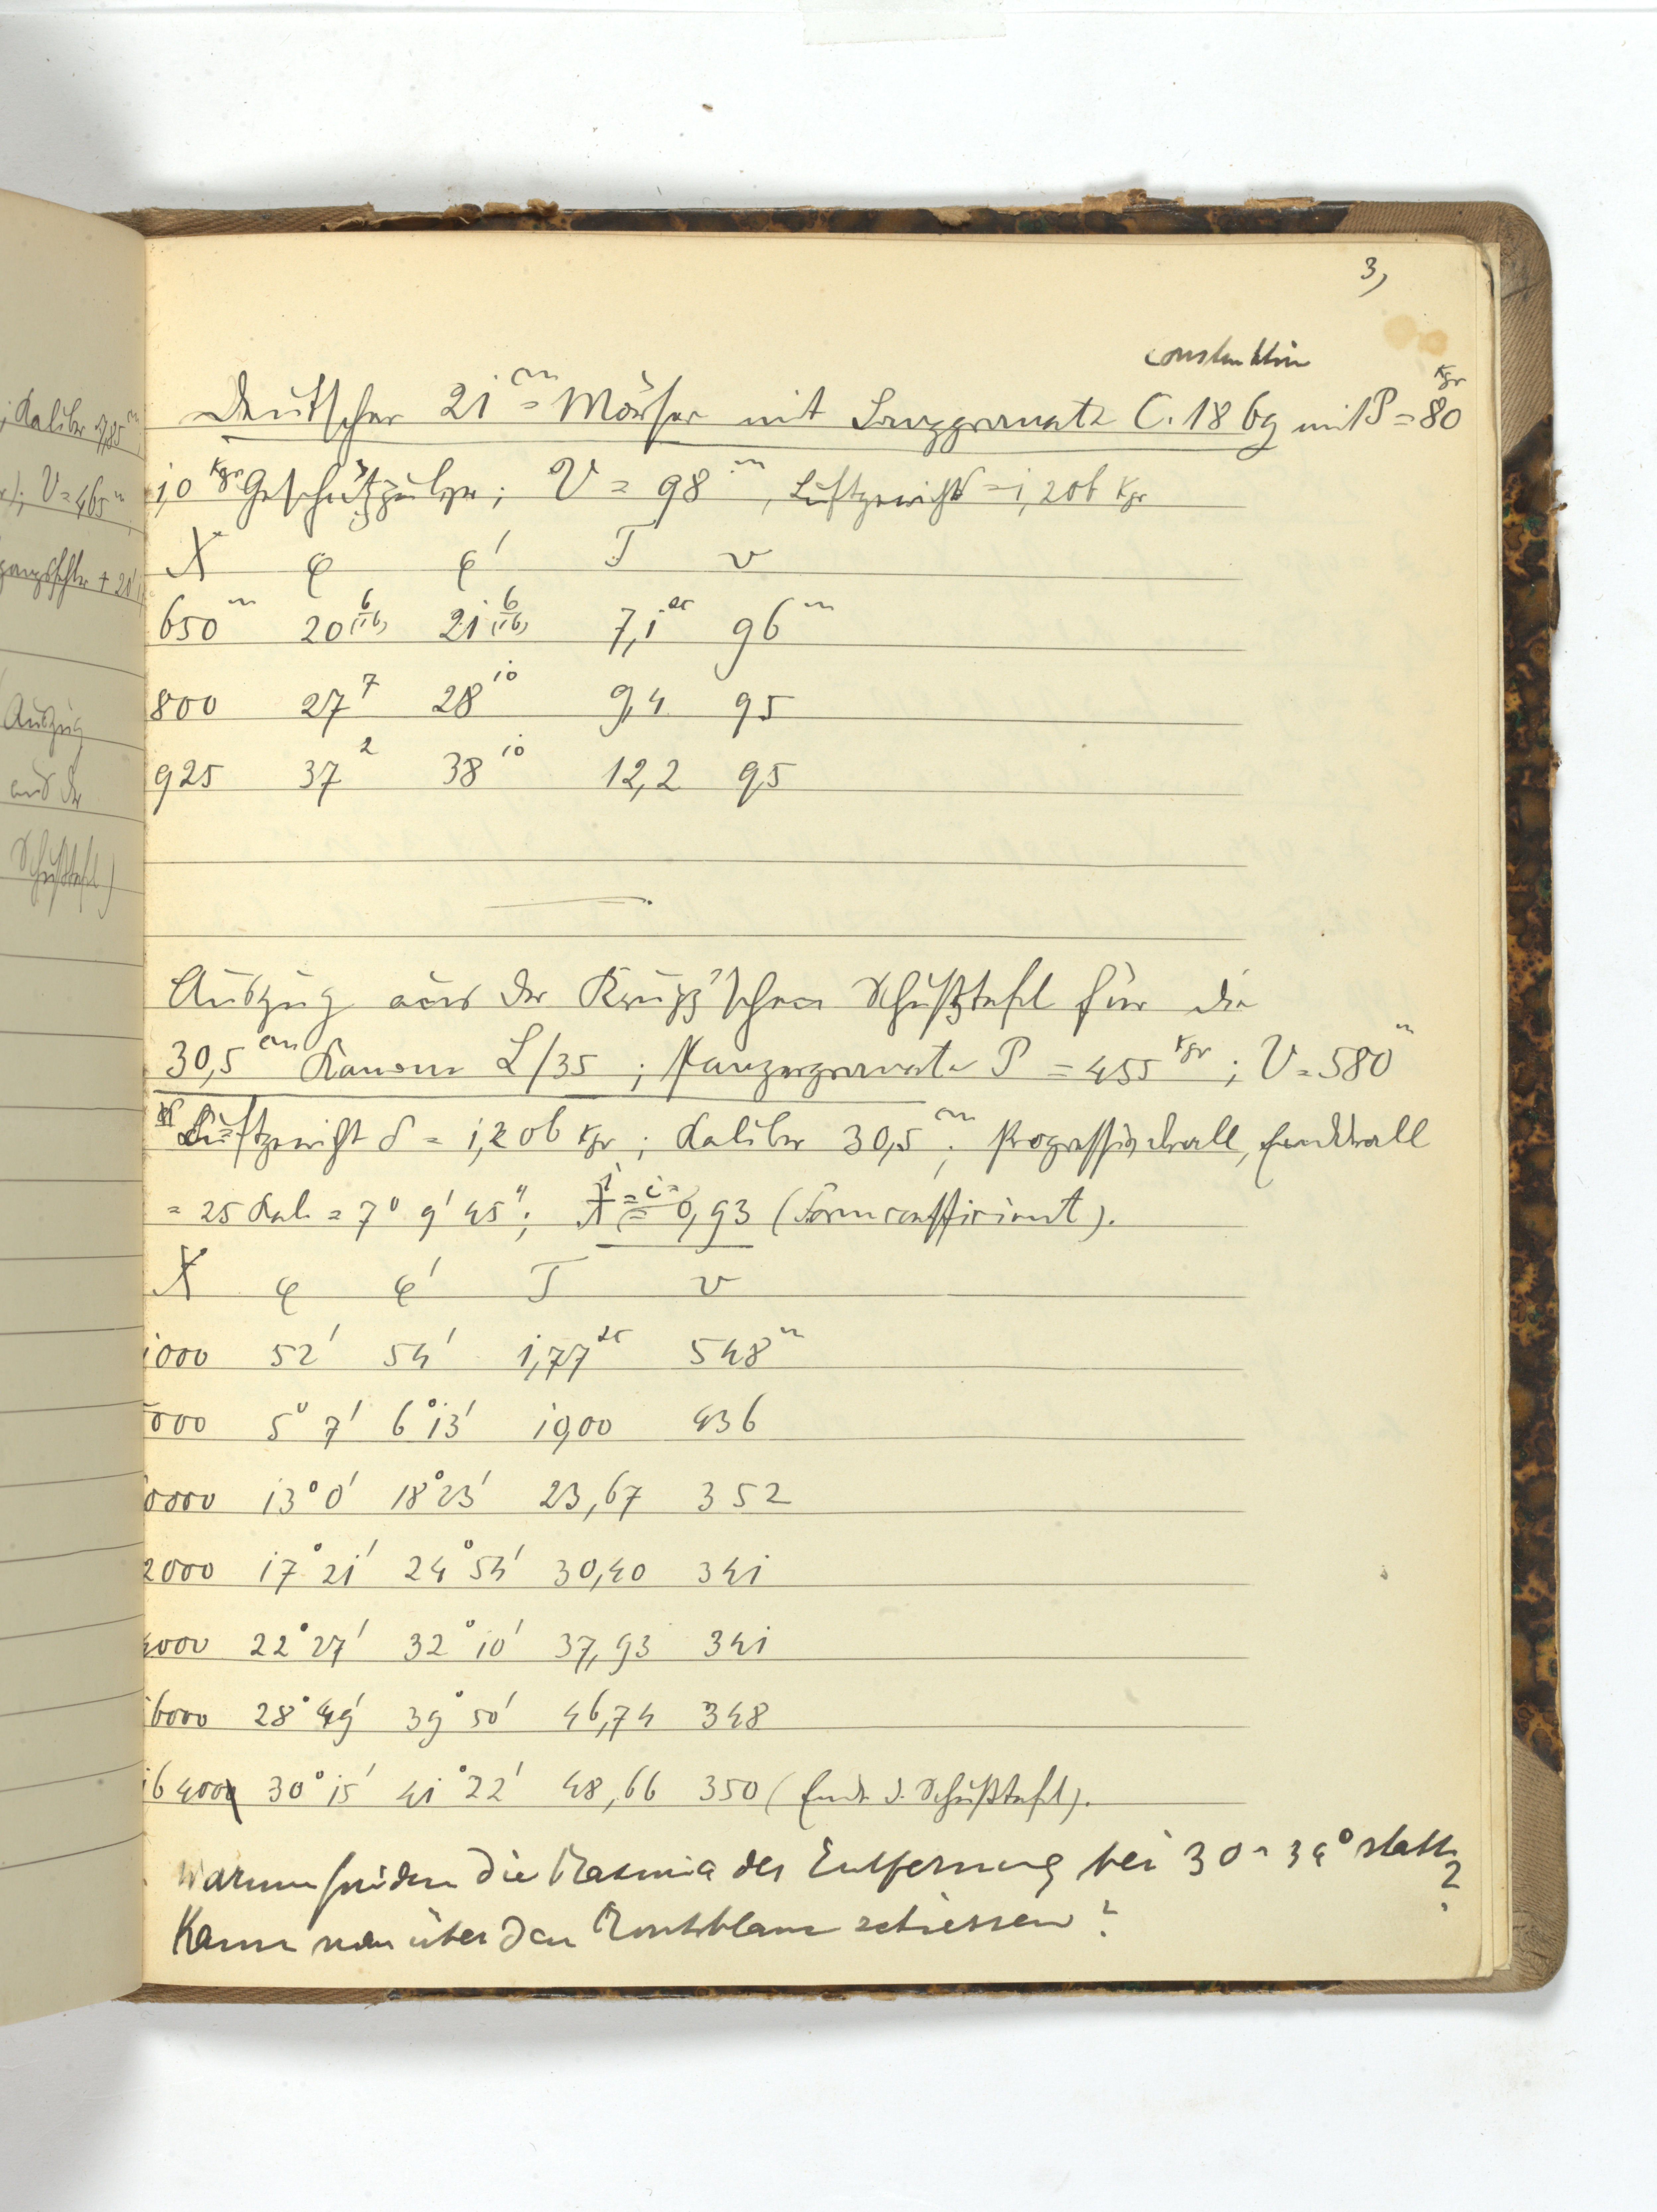 3,
Construktion
Deutscher 21 cm = Mörser mit Langgranate C. 1869 mit P = 80 Kgr
1,0 Kgr Geschützpulver; V = 98 m, Luftgewicht = 1,206 Kgr
X φ φ' T v
650 m 20 6/(16) 21 6/(16) 7,1 sec 96 m
800 27 7 28 10 9,4 95
925 37 2 38 10 12,2 95
Auszug aus der Krupp'schen Schußtafel für die
30,5 cm Kanone L/35; Panzergranate P = 455 Kgr; V = 580 m
Luftgewicht δ = 1,206 Kgr; Kaliber 30,5 cm; Progressivdrall, Enddrall
= 25 Kal. = 7° 9' 45"; i = 0,93 (Formcoefficient).
X φ φ' T v
1000 52' 54' 1,77 sec 548 m
5000 5° 7' 6° 13' 10,00 436
10000 13° 0' 18° 23' 23,67 352
2000 17° 21' 24° 54' 30,40 341
4000 22° 27' 32° 10' 37,93 341
16000 28° 49' 39° 50' 46,74 348
16400 30° 15' 41° 22' 48,66 350 (Ende d. Schußtafel).
Warum finden die Maxima der Entfernung bei 30 - 34° statt?
Kann man über den Montblanc schiessen?
; Kaliber
); V = 465 m
+ 20'
Auszug
aus der
Schußtafel)